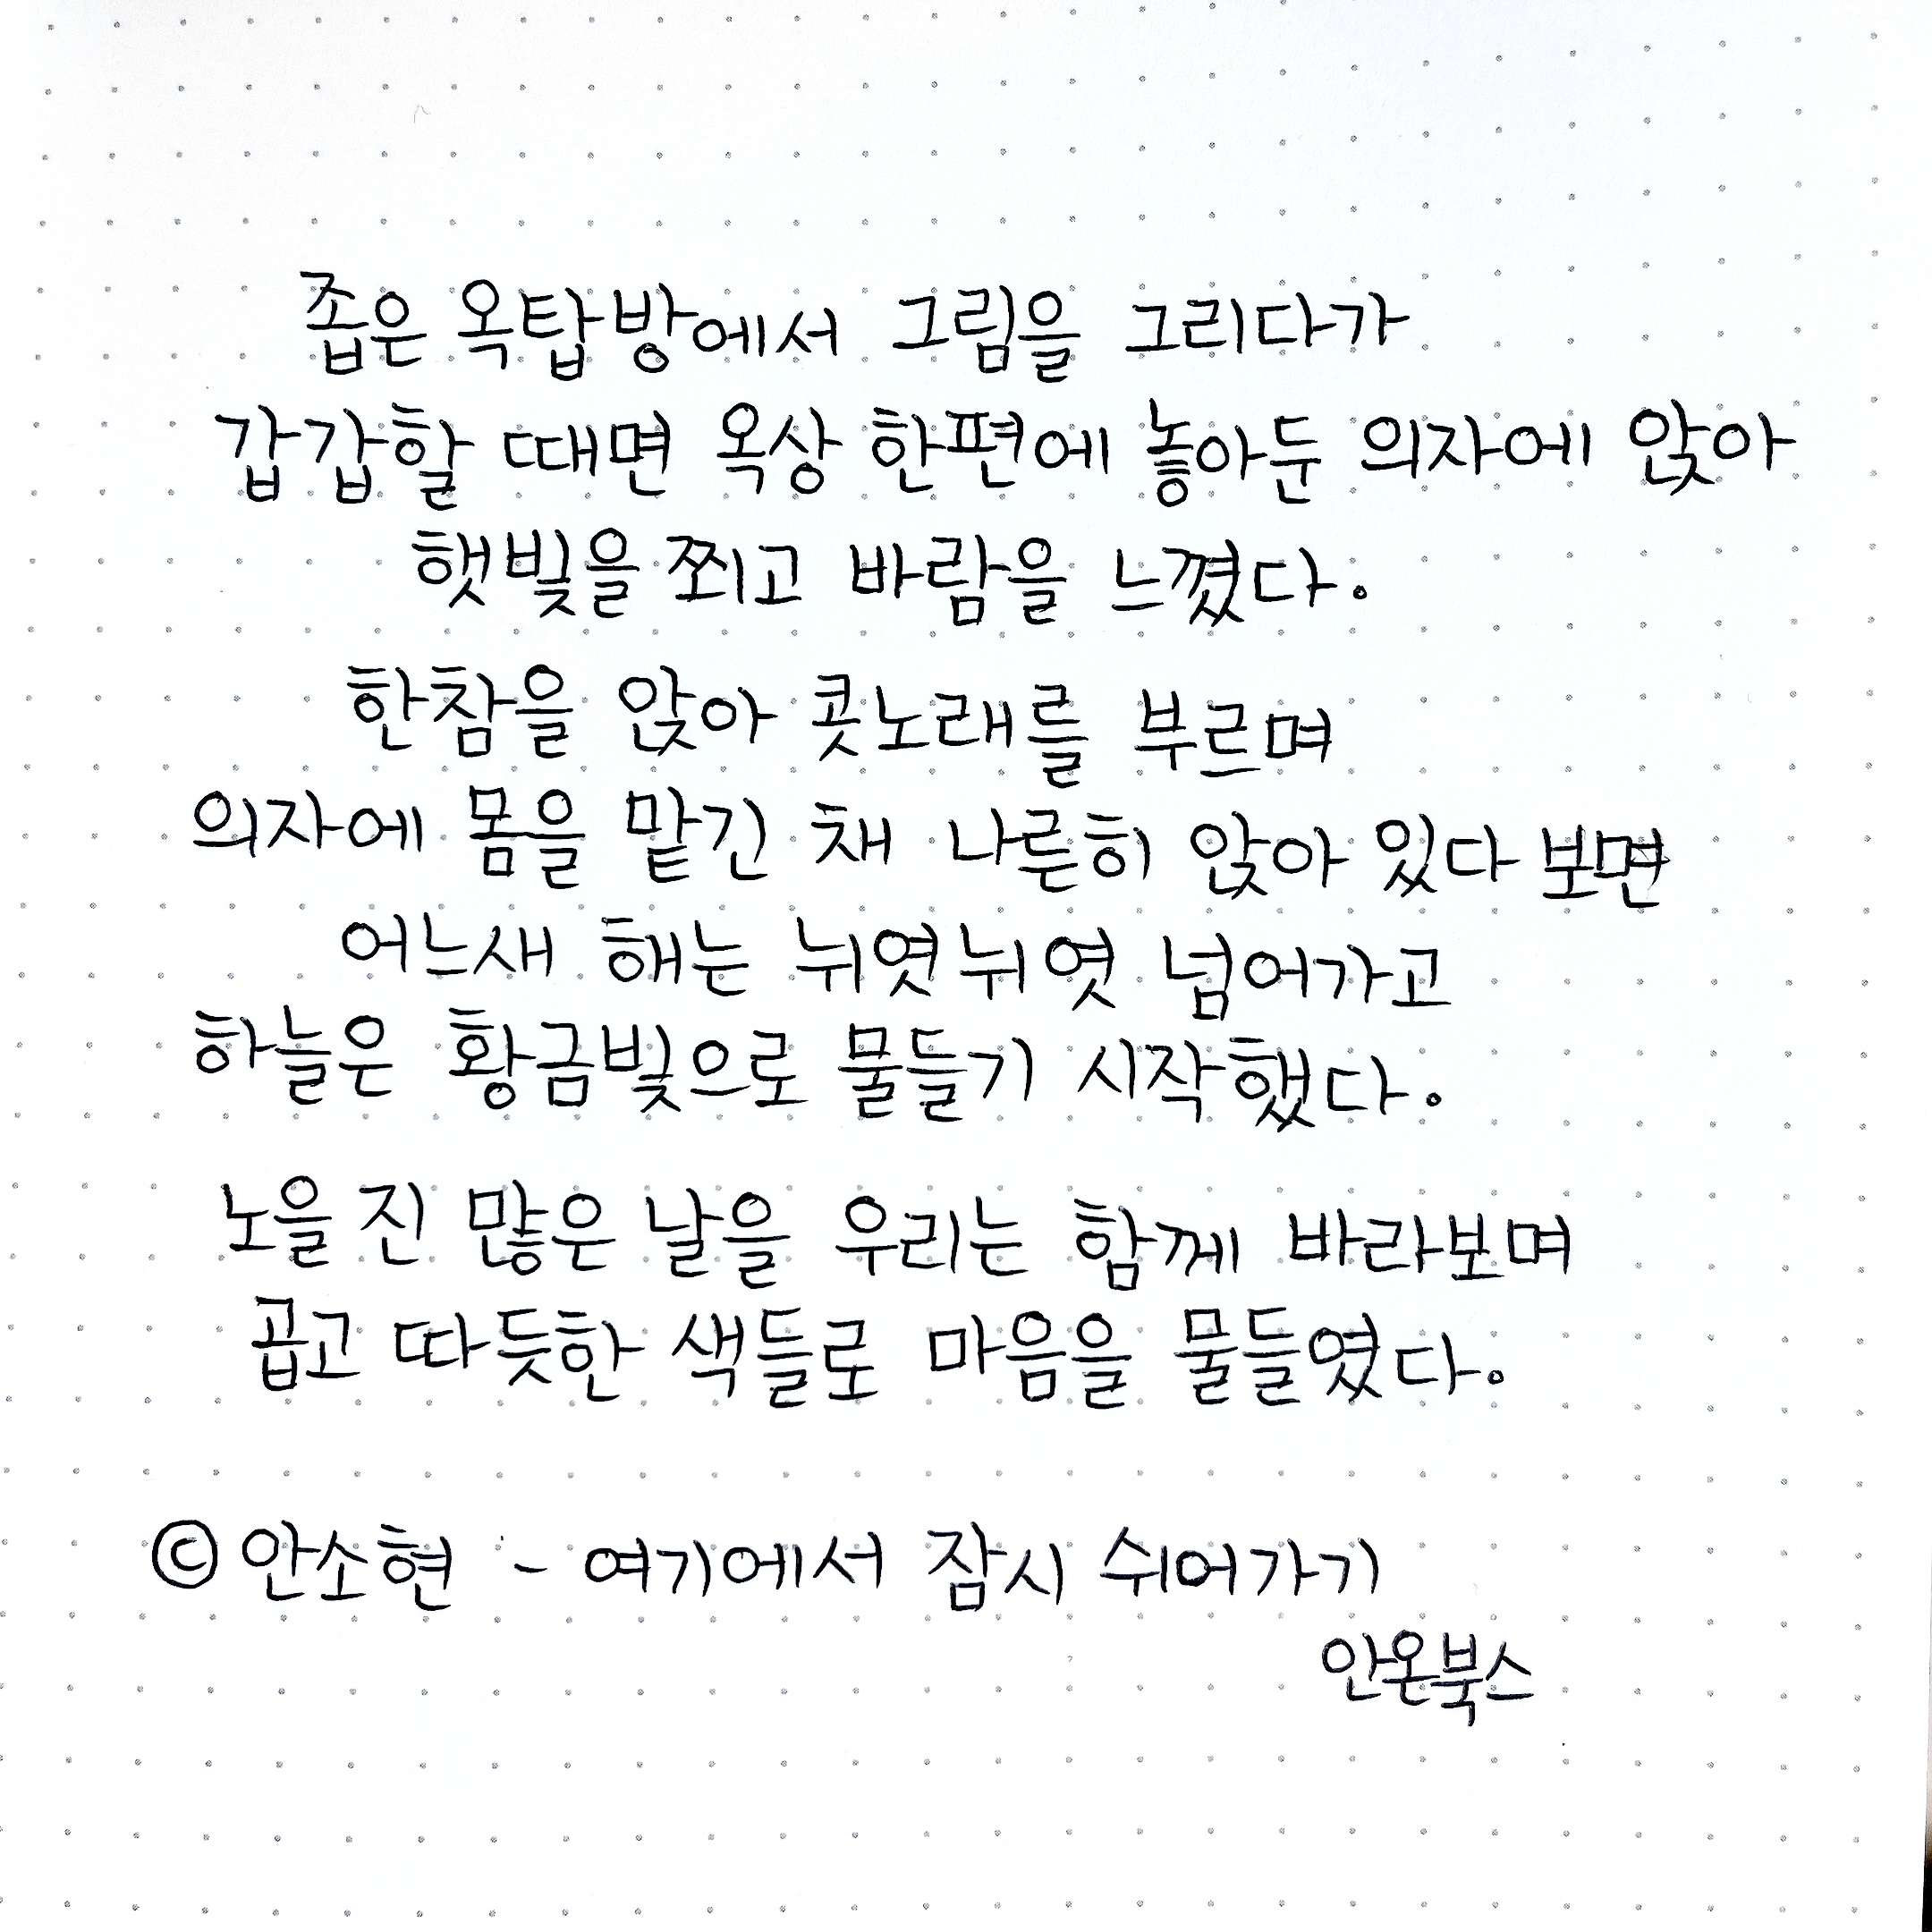 좁은 옥탑방에서 그림을 그리다가
갑갑할 때면 옥상 한편에 놓아둔 의자에 앉아
햇빛을 쬐고 바람을 느꼈다.
한참을 앉아 콧노래를 부르며
의자에 몸을 맡긴 채 나른히 앉아 있다 보면
어느새 해는 뉘엿뉘엿 넘어가고
하늘은 황금빛으로 물들기 시작했다.
노을 진 많은 날을 우리는 함께 바라보며
곱고 따듯한 색들로 마음을 물들였다.
© 안소현 - 여기에서 잠시 쉬어가기
안온북스